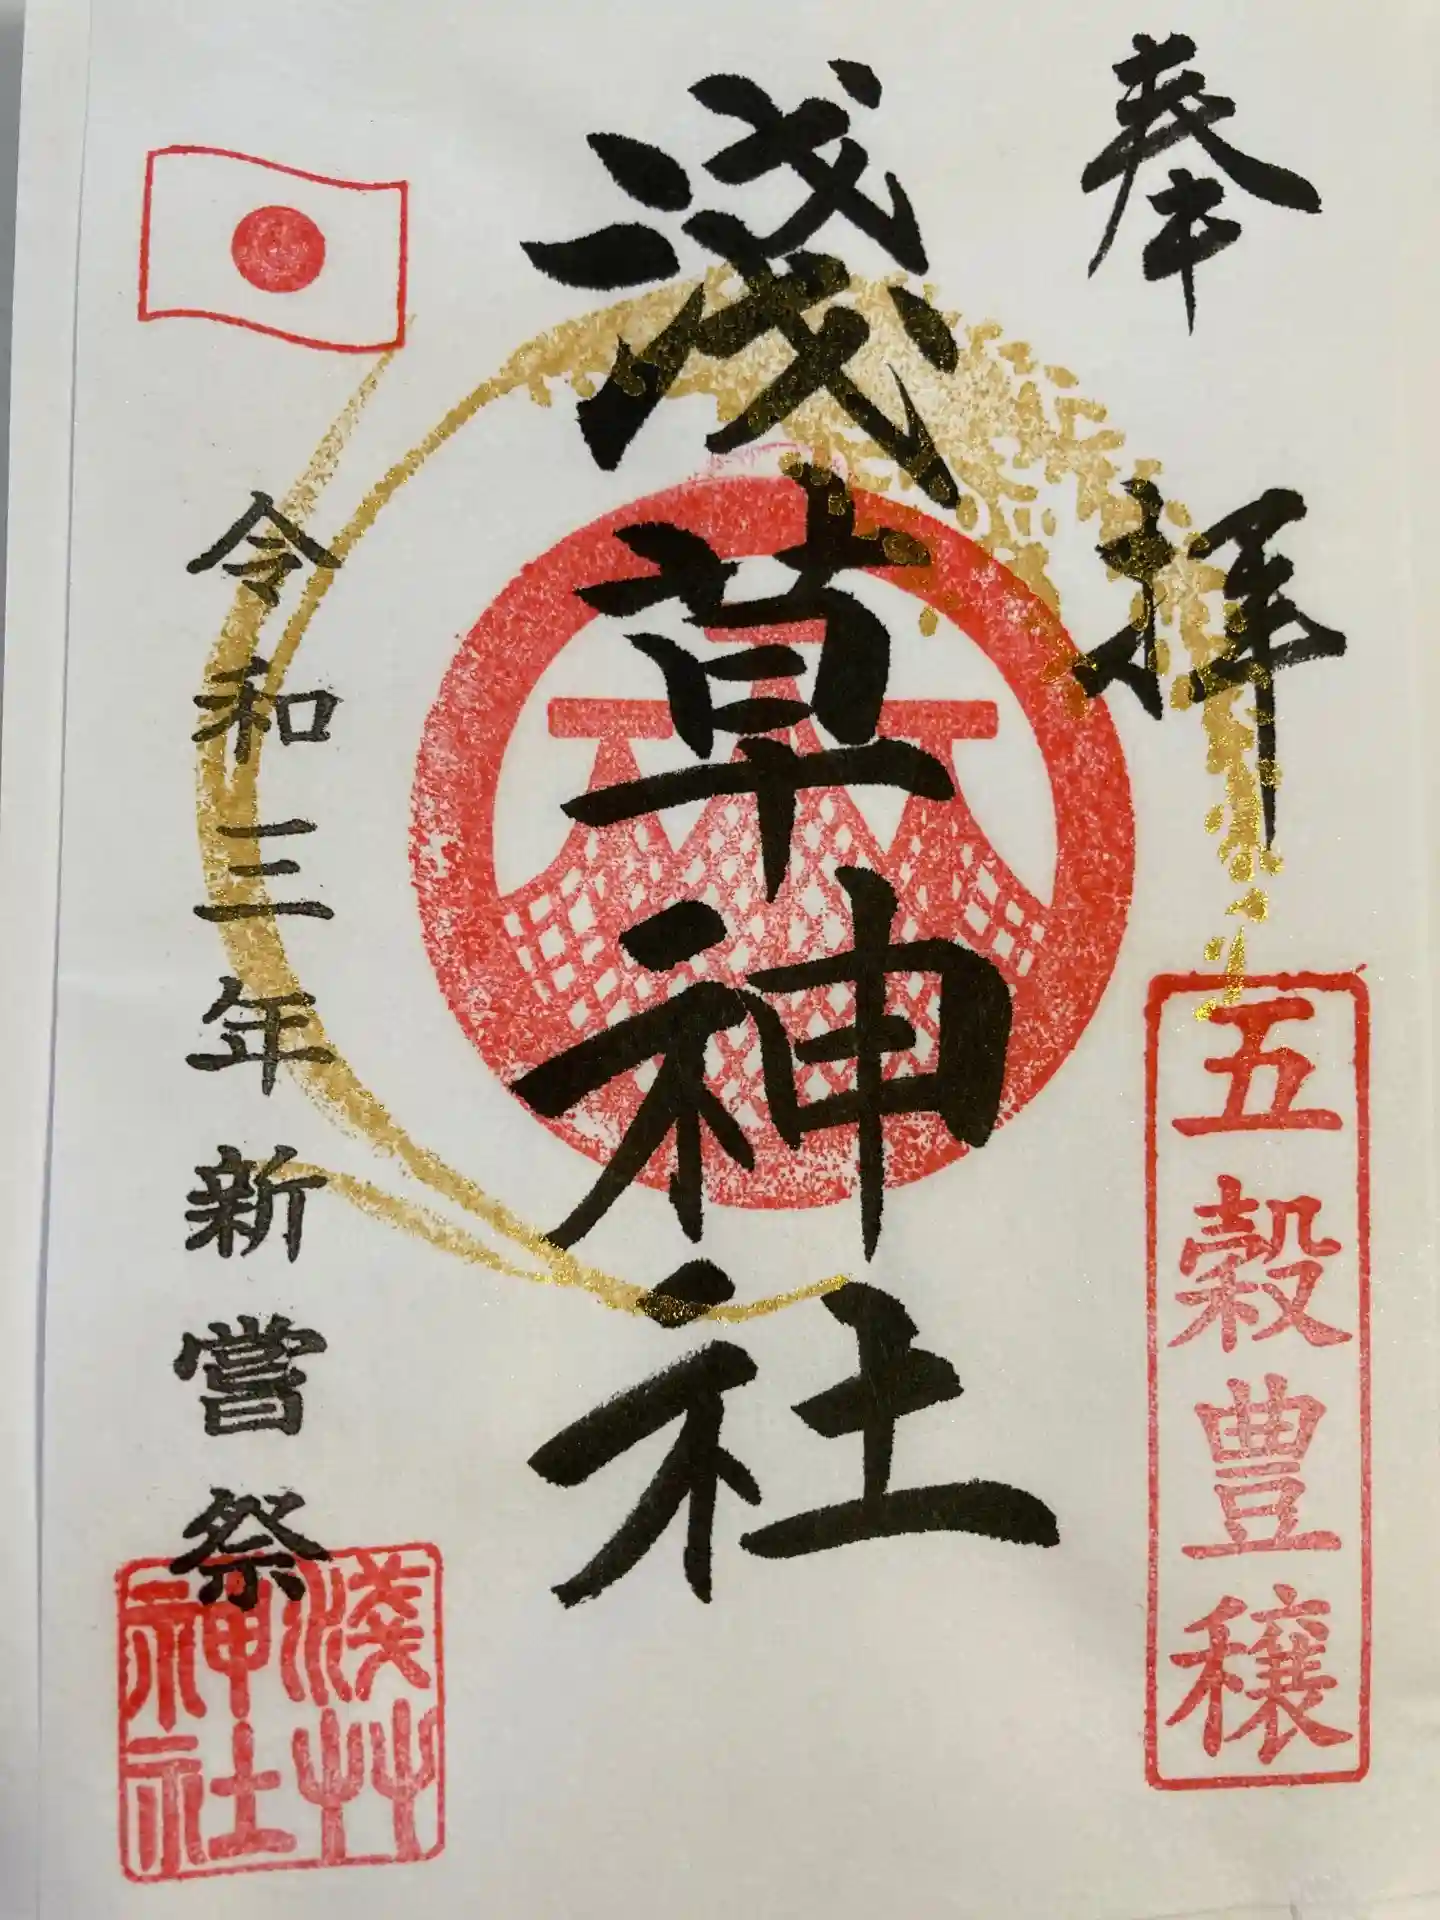 奉拝
五穀豊穣
淺草神社
令和三年新嘗祭
淺艸
神社